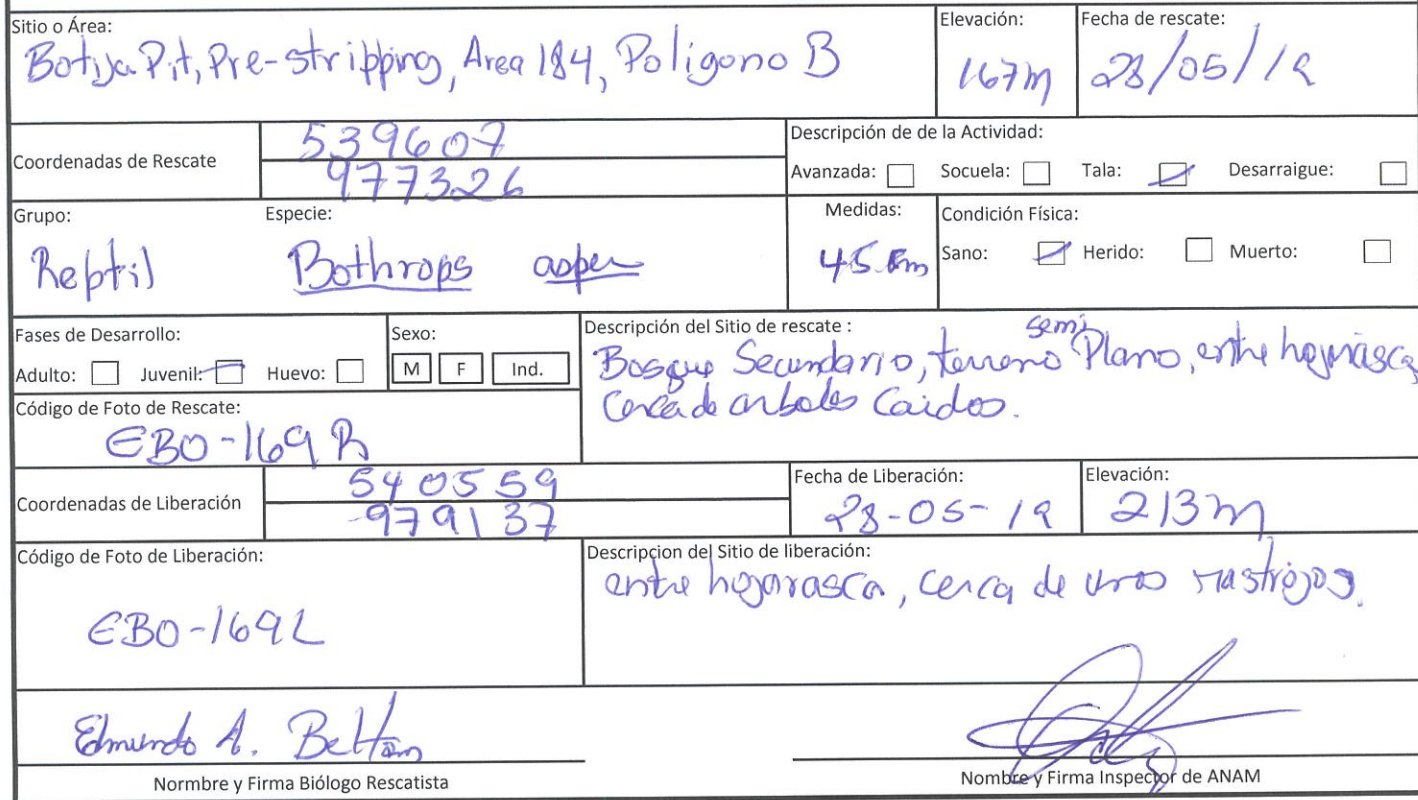 Sitio o Área:
Botija Pit, Pre-stripping, Area 184, Poligono B
Elevación:
167m
Fecha de rescate:
28/05/19
Coordenadas de Rescate
539607
977326
Descripción de de la Actividad:
Avanzada: Socuela: Tala: Desarraigue:
Grupo:
Reptil
Especie:
Bothrops asper
Medidas:
45 cm
Condición Física:
Sano: Herido: Muerto:
Fases de Desarrollo:
Adulto: Juvenil: Huevo:
Sexo:
M F Ind.
Descripción del Sitio de rescate :
Bosque Secundario, terreno semi Plano, entre hojarasca,
Cerca de arboles Caidos.
Código de Foto de Rescate:
EBO-169 R
Coordenadas de Liberación
540559
979137
Fecha de Liberación:
28-05-19
Elevación:
213m
Código de Foto de Liberación:
EBO-169L
Descripcion del Sitio de liberación:
entre hojarasca, cerca de unos rastrojos.
Edmundo A. Beltán
Normbre y Firma Biólogo Rescatista
Nombre y Firma Inspector de ANAM